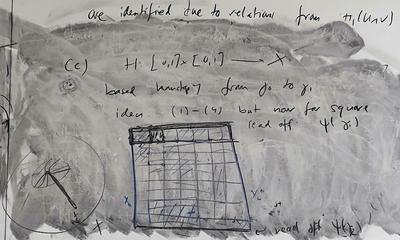 are identified due to relations from π₁(U∩V)
(c) H: [0,1] × [0,1] → X
based homotopy from γ₀ to γ₁
idea (1)-(4) but now for square
read off φ(γ₁)
γ₀
X
read off